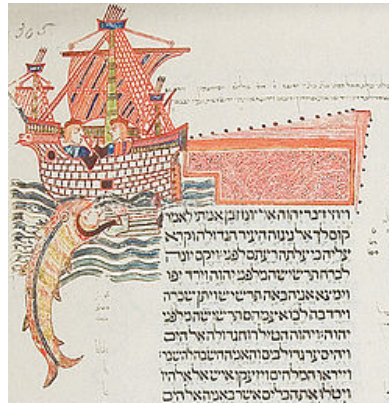 305
ויהי דבר יהוה אל יונה בן אמתי לאמר
קום לך אל נינוה העיר הגדולה וקרא
עליה כי עלתה רעתם לפני ויקם יונה
לברח תרשישה מלפני יהוה וירד יפו
וימצא אניה באה תרשיש ויתן שכרה
וירד בה לבוא עמהם תרשישה מלפני
יהוה ויהוה הטיל רוח גדולה אל הים
ויהי סער גדול בים והאניה חשבה להשבר
וייראו המלחים ויזעקו איש אל אלהיו
ויטלו את הכלים אשר באניה אל הים